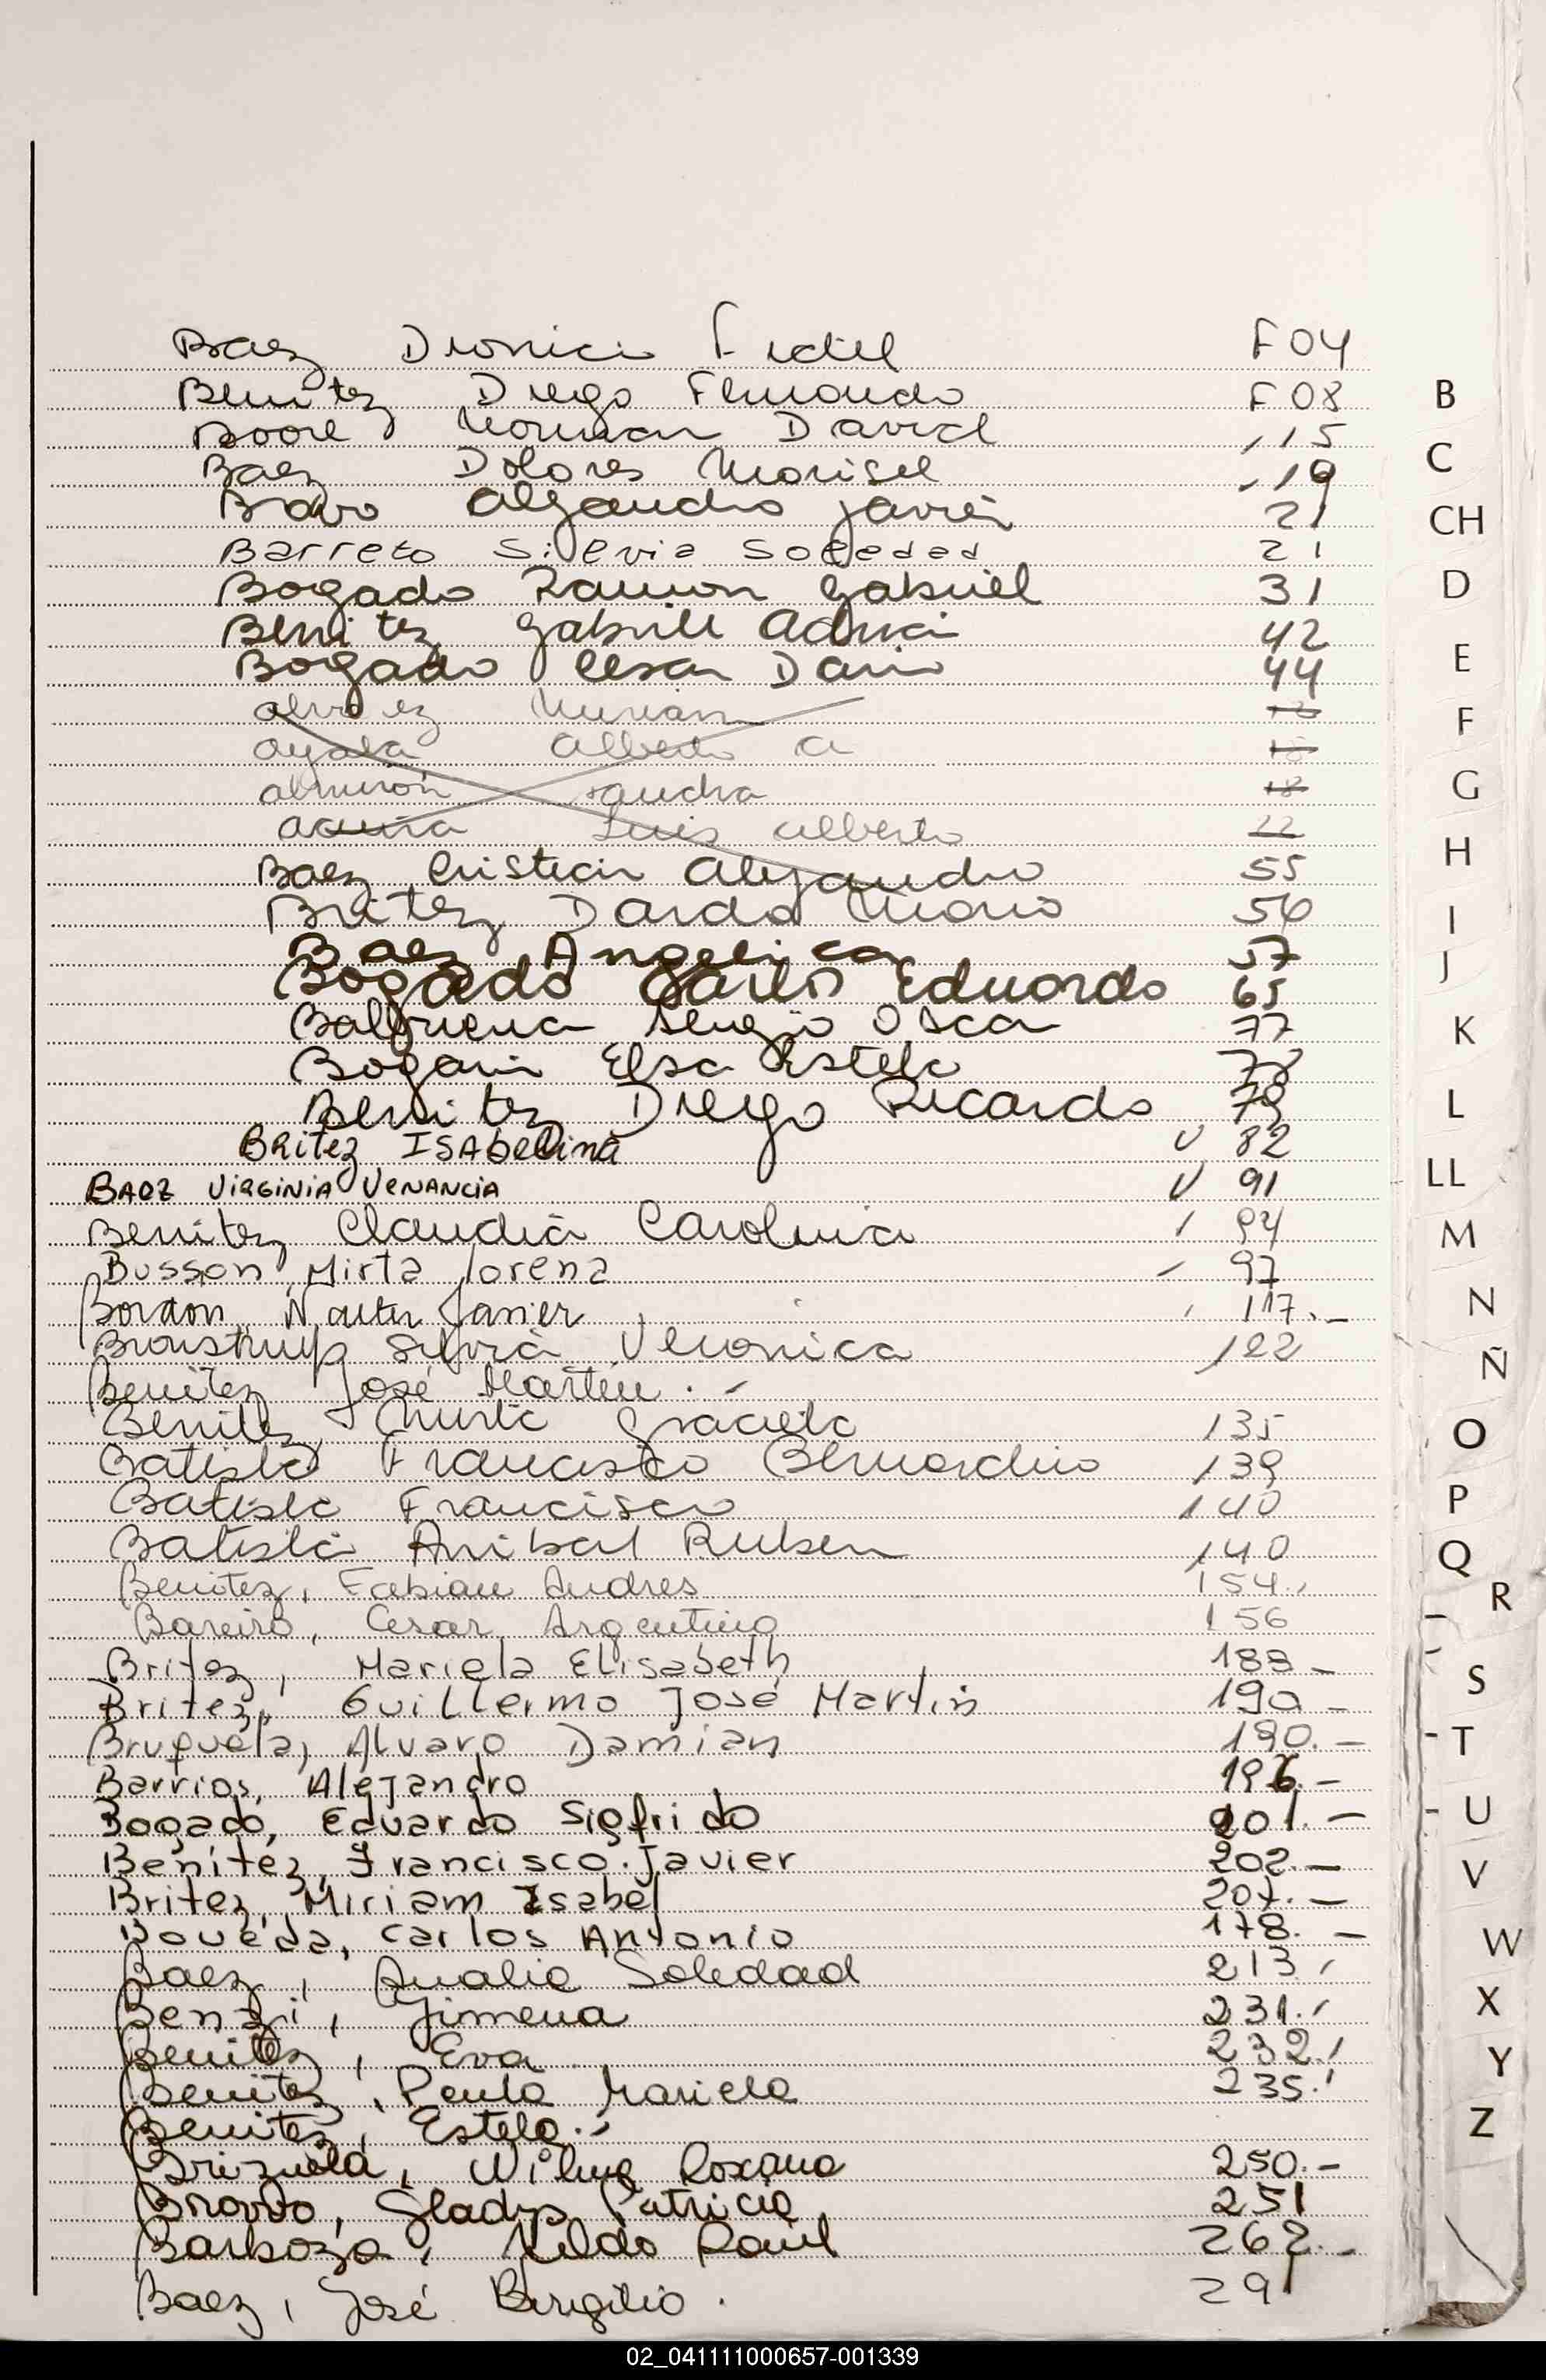 Baez Dionici Fidel F04
Benitez Diego Fernando F08
Boore Norman David 15
Baez Dolores Marisel 19
Bravo Alejandro Javier 21
Barreto Silvia Soledad 21
Bogado Ramon Gabriel 31
Benitez Gabriel Adrian 42
Bogado Cesar Dario 44
Alvarez Mirian
Ayala Alberto A
Almirón Sandra 18
Acuña Luis Alberto 22
Baez Cristian Alejandro 55
Britez Dardo Mario 56
Baez Angelica 57
Bogado Carlos Eduardo 65
Balbuena Sergio Oscar 77
Bogarin Elsa Estela 78
Benitez Diego Ricardo 79
Britez ISAbelina 82
BAez VirGiNiA VeNANCiA 91
Benitez, Claudia Carolina 94
Busson, Mirta Lorena 97
Bordon, Walter Javier 117.-
Silvia Veronica 122
Benitez José Martin . -
Benitez, Mirta Graciela 135
Batista Francisco Bernardino 139
Batista Francisco 140
Batista Anibal Ruben 140
Benitez, Fabian Andres 154.,
Bareiro, Cesar Argentino 156
Britez, Mariela Elisabeth 188 -
Britez, Guillermo José Martin 190 -
Bruquela, Alvaro Damian 190. -
Barrios, Alejandro 196. -
Bogado, Eduardo Sigfrido 201. -
Benítez, Francisco Javier 202. -
Britez, Miriam Isabel 207. -
Boveda, Carlos Antonio 178. -
Baez, Analia Soledad 213
Benzi, Jimena 231.
Benitez, Eva 232.
Benitez, Paula Mariela 235.
Benitez, Estela.
Brizuela, Wilma Roxana 250. -
Bravo, Gladys Patricia 251
Barboza, Nildo Raúl 262. -
Baez, José Birgilio. 291
B
C
CH
D
E
F
G
H
I
J
K
L
LL
M
N
Ñ
O
P
Q
R
S
T
U
V
W
X
Y
Z
02_041111000657-001339